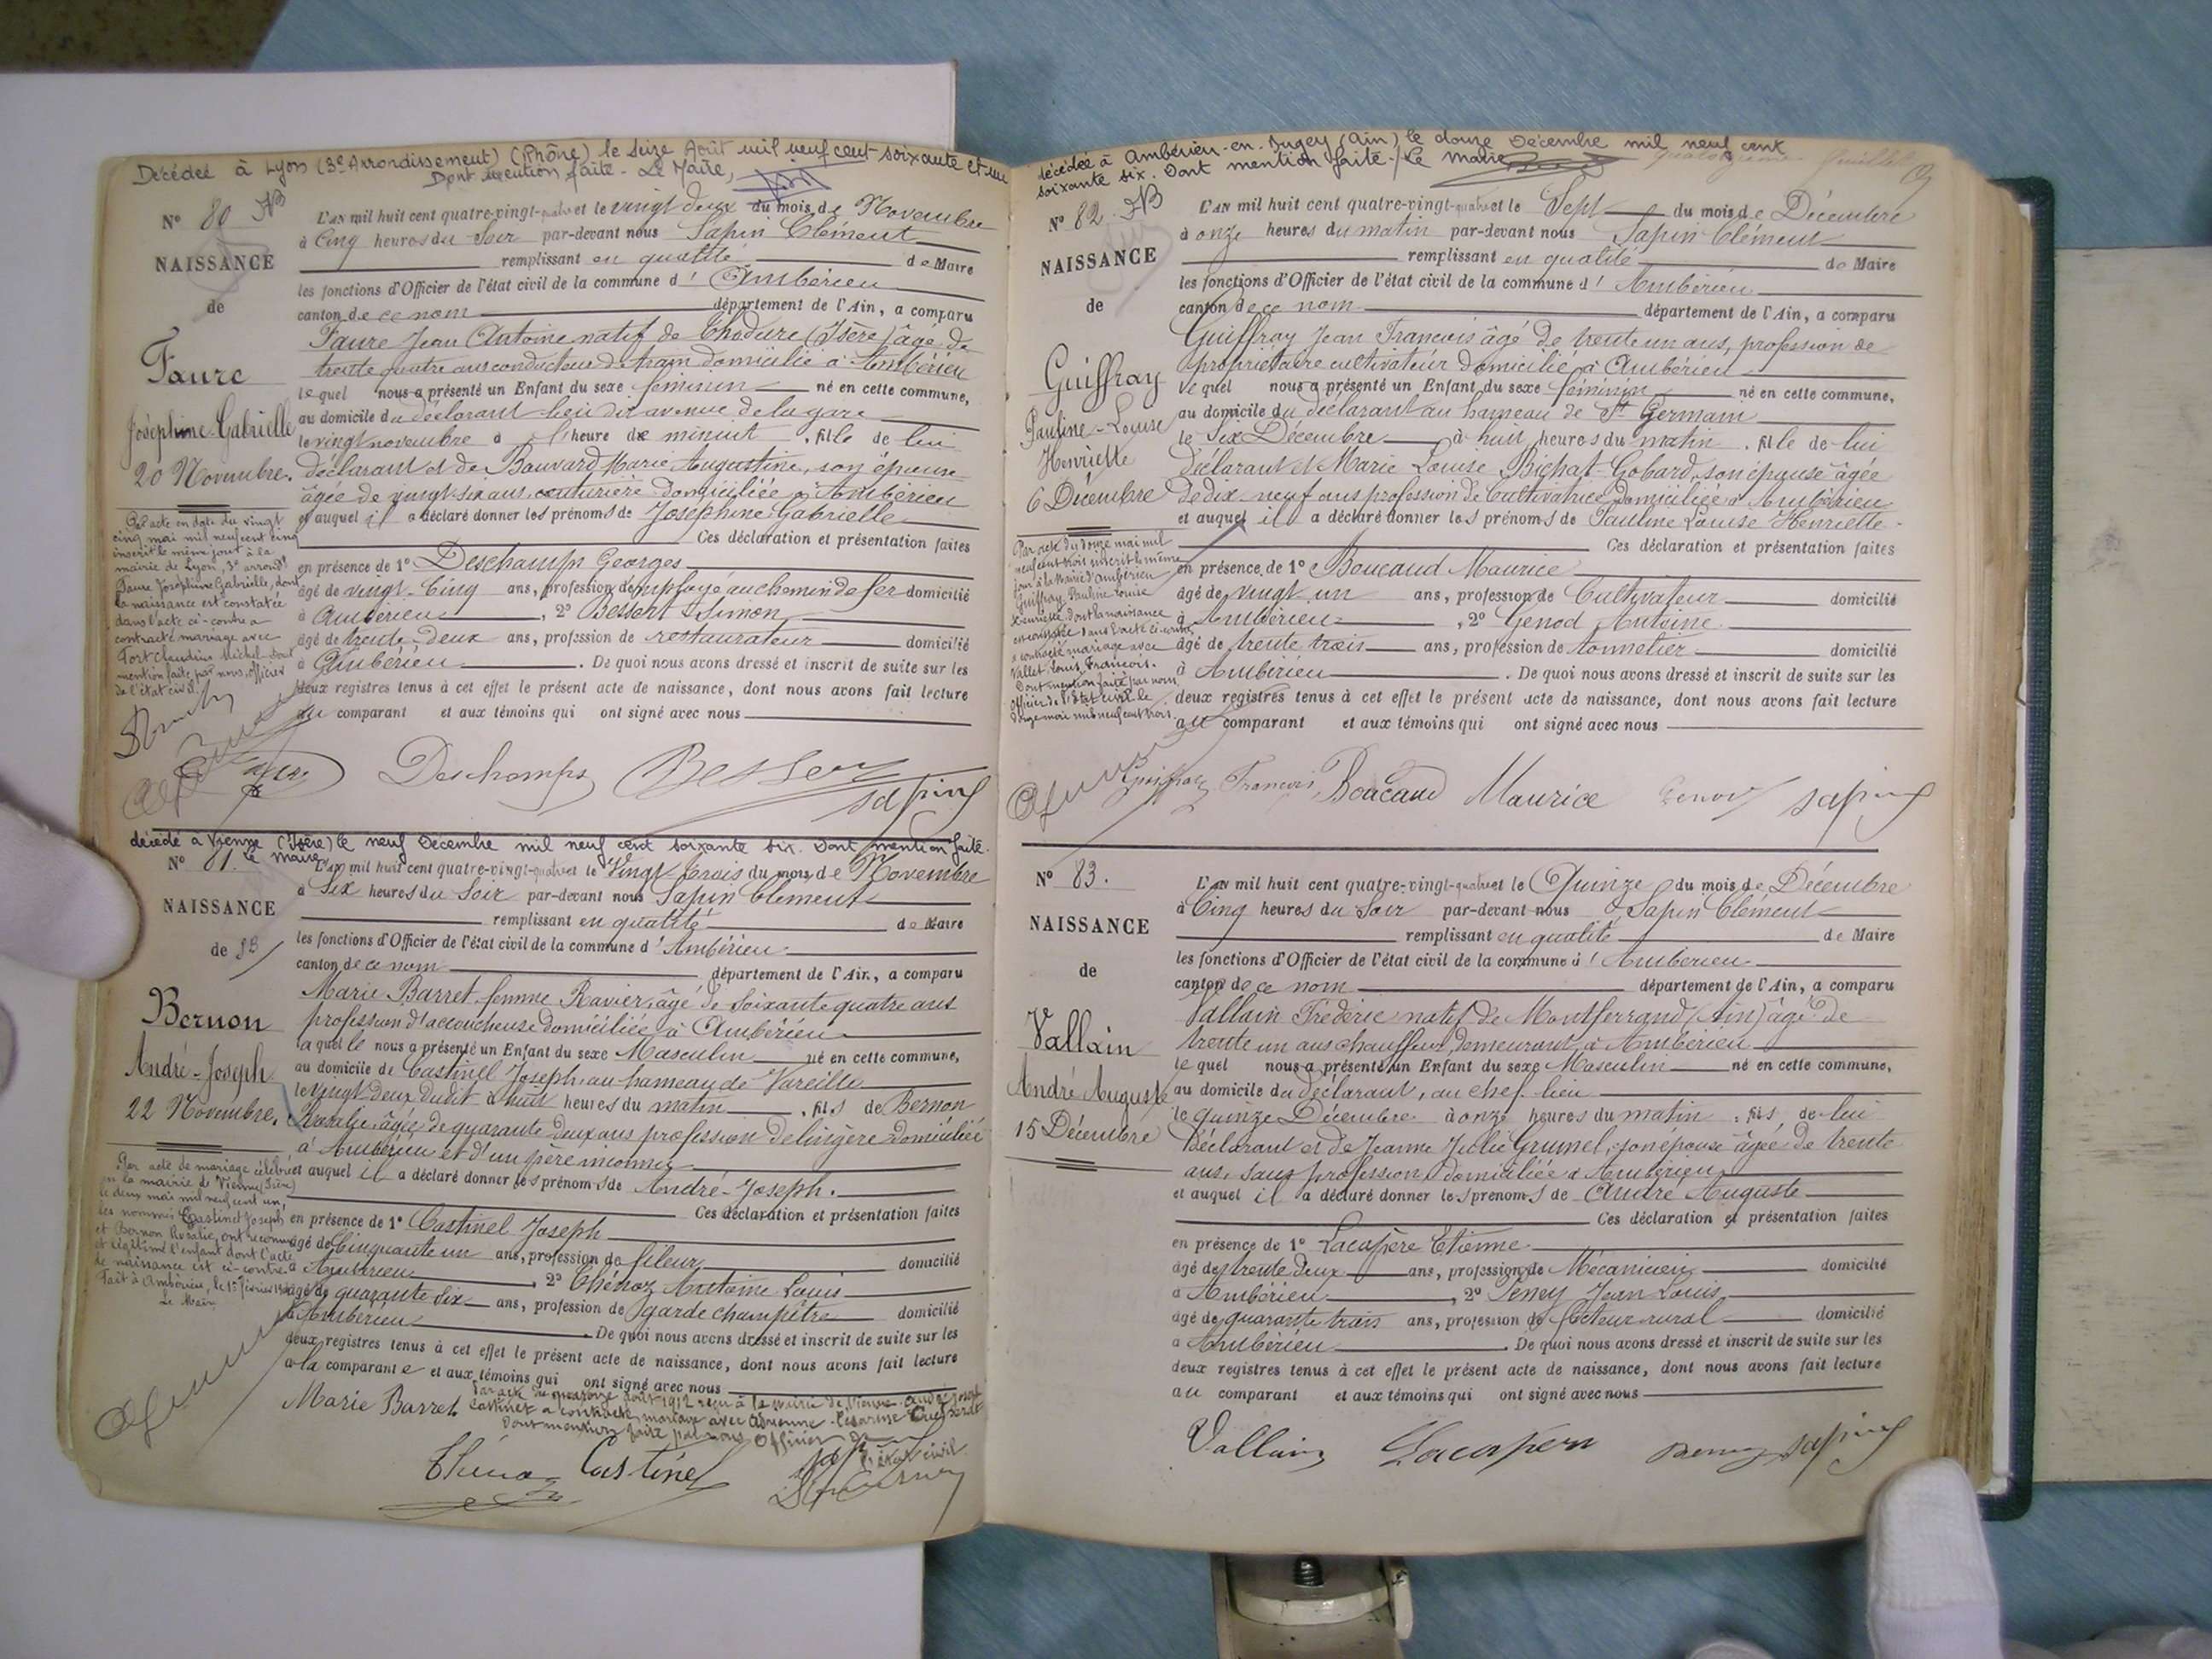 Décédée à Lyon (3e Arrondissement) (Rhône) le Seize Août mil neuf cent soixante et un
Dont mention faite - Le Maire,
N° 80
NAISSANCE
de
Faure
Joséphine-Gabrielle
20 Novembre.
L'an mil huit cent quatre-vingt-quatre et le vingt deux du mois de Novembre
à Cinq heures du Soir par-devant nous Sapin Clément
remplissant en qualité de Maire
les fonctions d'Officier de l'état civil de la commune d'Ambérieu
canton de ce nom département de l'Ain, a comparu
Faure Jean Antoine natif de Thodure (Isère) âgé de
trente quatre ans conducteur de train domicilié à Ambérieu
lequel nous a présenté un Enfant du sexe féminin né en cette commune,
au domicile du déclarant lieu dit avenue de la gare
le vingt novembre à l'heure de minuit, fille de lui
déclarant et de Bouvard Marie Augustine, son épouse
âgée de vingt-six ans couturière domiciliée à Ambérieu
et auquel il a déclaré donner les prénoms de Joséphine Gabrielle
Ces déclaration et présentation faites
en présence de 1° Deschamps Georges
âgé de vingt-Cinq ans, profession d'employé au chemin de fer domicilié
à Ambérieu, 2° Bessent Simon
âgé de trente-deux ans, profession de restaurateur domicilié
à Ambérieu. De quoi nous avons dressé et inscrit de suite sur les
deux registres tenus à cet effet le présent acte de naissance, dont nous avons fait lecture
au comparant et aux témoins qui ont signé avec nous
Par acte en date du vingt
cinq mai mil neuf cent cinq
inscrit le même jour à la
mairie de Lyon, 3e arrondt
Faure Joséphine Gabrielle, dont
la naissance est constatée
dans l'acte ci-contre a
contracté mariage avec
Fort Claudius Michel dont
mention faite par nous, officier
de l'état civil.
Deschamps
Sapin
décédé à Vienne (Isère) le neuf Décembre mil neuf cent soixante six. Dont mention faite.
le maire
N° 81.
NAISSANCE
de
Bernon
André-Joseph
22 Novembre.
L'an mil huit cent quatre-vingt-quatre et le Vingt trois du mois de Novembre
à Six heures du Soir par-devant nous Sapin Clément
remplissant en qualité de Maire
les fonctions d'Officier de l'état civil de la commune d'Ambérieu
canton de ce nom département de l'Ain, a comparu
Marie Barret femme Ravier, âgé de Soixante quatre ans
profession d'accoucheuse domiciliée à Ambérieu
laquelle nous a présenté un Enfant du sexe Masculin né en cette commune,
au domicile de Castinel Joseph au hameau de Vareille
le vingt deux dudit à huit heures du matin, fils de Bernon
Rosalie âgée de quarante deux ans profession de lingère domiciliée
à Ambérieu et d'un père inconnu
et auquel il a déclaré donner les prénoms de André-Joseph.
Ces déclaration et présentation faites
en présence de 1° Castinel Joseph
âgé de Cinquante un ans, profession de fileur domicilié
à Ambérieu, 2° Thénoz Antoine Louis
âgé de quarante Six ans, profession de garde champêtre domicilié
à Ambérieu. De quoi nous avons dressé et inscrit de suite sur les
deux registres tenus à cet effet le présent acte de naissance, dont nous avons fait lecture
à la comparante et aux témoins qui ont signé avec nous
Par acte de mariage célébré
en la mairie de Vienne (Isère)
le deux mai mil neuf cent un,
les nommés Castinel Joseph
et Bernon Rosalie, ont reconnu
et légitimé l'enfant dont l'acte
de naissance est ci-contre.
Fait à Ambérieu, le 15 février
Le Maire
Par acte du quatorze août 1912 reçu à la mairie de Vienne André Joseph
Castinel a contracté mariage avec Adrienne Césarine
Dont mention faite par nous Officier de
l'état civil
Marie Barret
Thénoz Castinel
décédée à Ambérieu-en-Bugey (Ain) le douze Décembre mil neuf cent
soixante six. Dont mention faite / Le Maire
N° 82
NAISSANCE
de
Guiffray
Pauline-Louise
Henriette
6 Décembre
L'an mil huit cent quatre-vingt-quatre et le Sept du mois de Décembre
à onze heures du matin par-devant nous Sapin Clément
remplissant en qualité de Maire
les fonctions d'Officier de l'état civil de la commune d'Ambérieu
canton de ce nom département de l'Ain, a comparu
Guiffray Jean François âgé de trente un ans, profession de
propriétaire cultivateur domicilié à Ambérieu
lequel nous a présenté un Enfant du sexe féminin né en cette commune,
au domicile du déclarant au hameau de St Germain
le Six Décembre à huit heures du matin, fille de lui
déclarant et Marie Louise Bichat-Gobard, son épouse âgée
de dix-neuf ans profession de Cultivatrice domiciliée à Ambérieu
et auquel il a déclaré donner les prénoms de Pauline Louise Henriette
Ces déclaration et présentation faites
en présence de 1° Boucaud Maurice
âgé de vingt un ans, profession de Cultivateur domicilié
à Ambérieu, 2° Genod Antoine
âgé de trente trois ans, profession de tonnelier domicilié
à Ambérieu. De quoi nous avons dressé et inscrit de suite sur les
deux registres tenus à cet effet le présent acte de naissance, dont nous avons fait lecture
au comparant et aux témoins qui ont signé avec nous
Par acte du douze mai mil
neuf cent trois inscrit le même
jour à la Mairie d'Ambérieu
Guiffray Pauline Louise
Henriette dont la naissance
est constatée dans l'acte ci-contre
a contracté mariage avec
Vallet Louis François.
Dont mention faite par nous
Officier de l'état civil le
douze mai mil neuf cent trois
Guiffray François Boucaud Maurice Genod Sapin
N° 83.
NAISSANCE
de
Vallain
André Auguste
15 Décembre
L'an mil huit cent quatre-vingt-quatre et le Quinze du mois de Décembre
à Cinq heures du Soir par-devant nous Sapin Clément
remplissant en qualité de Maire
les fonctions d'Officier de l'état civil de la commune d'Ambérieu
canton de ce nom département de l'Ain, a comparu
Vallain Frédéric natif de Montferrand (Ain) âgé de
trente un ans chauffeur, demeurant à Ambérieu
lequel nous a présenté un Enfant du sexe Masculin né en cette commune,
au domicile du déclarant, au chef-lieu
le quinze Décembre à onze heures du matin, fils de lui
déclarant et de Jeanne Julie Grumel, son épouse âgée de trente
ans, sans profession domiciliée à Ambérieu
et auquel il a déclaré donner les prénoms de André Auguste
Ces déclaration et présentation faites
en présence de 1° Lacapère Etienne
âgé de trente deux ans, profession de Mécanicien domicilié
à Ambérieu, 2° Perney Jean Louis
âgé de quarante trois ans, profession de facteur rural domicilié
à Ambérieu. De quoi nous avons dressé et inscrit de suite sur les
deux registres tenus à cet effet le présent acte de naissance, dont nous avons fait lecture
au comparant et aux témoins qui ont signé avec nous
Vallain Lacapère Sapin